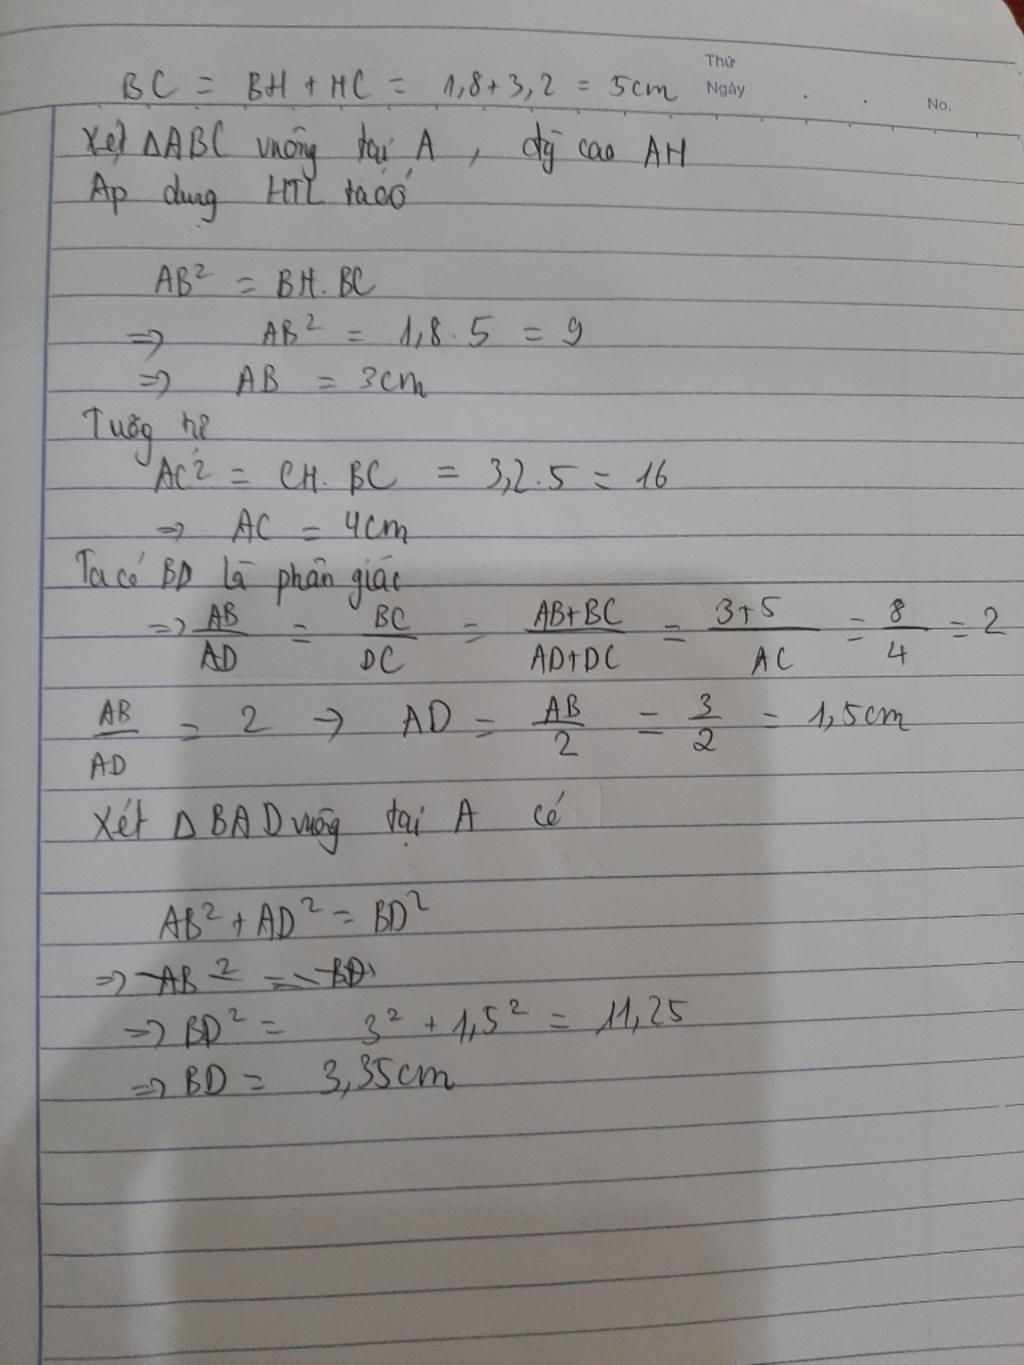 Thứ
Ngày . . No.
BC = BH + HC = 1,8 + 3,2 = 5cm
Xét ΔABC vuông tại A , đg cao AH
Ap dung HTL ta có
AB² = BH. BC
=> AB² = 1,8 . 5 = 9
=> AB = 3cm
Tương tự
AC² = CH. BC = 3,2 . 5 = 16
=> AC = 4cm
Ta có BD là phân giác
=> AB/AD = BC/DC = AB+BC/AD+DC = 3+5/AC = 8/4 = 2
AB/AD = 2 → AD = AB/2 = 3/2 = 1,5cm
Xét Δ BAD vuông tại A có
AB² + AD² = BD²
=> AB² = BD
=> BD² = 3² + 1,5² = 11,25
=> BD = 3,35cm